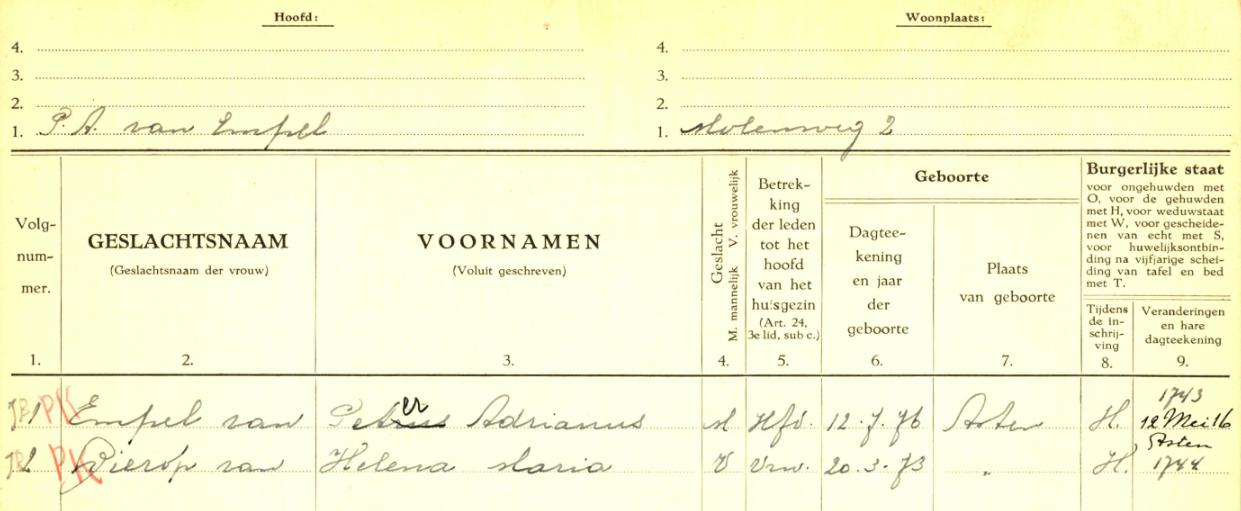 Hoofd: Woonplaats:
4. 4.
3. 3.
2. 2.
1. P. A. van Empel 1. Molenweg 2
Volg-
num-
mer.
1.
GESLACHTSNAAM
(Geslachtsnaam der vrouw)
2.
VOORNAMEN
(Voluit geschreven)
3.
Geslacht
M. mannelijk V. vrouwelijk
4.
Betrek-
king
der leden
tot het
hoofd
van het
huisgezin
(Art. 24,
3e lid, sub c.)
5.
Geboorte
Dagtee-
kening
en jaar
der
geboorte
6.
Plaats
van geboorte
7.
Burgerlijke staat
voor ongehuwden met
O, voor de gehuwden
met H, voor weduwstaat
met W, voor gescheide-
nen van echt met S,
voor huwelijksontbin-
ding na vijfjarige schei-
ding van tafel en bed
met T.
Tijdens
de in-
schrij-
ving
8.
Veranderingen
en hare
dagteekening
9.
1 PK Empel van Peter Adrianus M Hfd. 12.7.76 Asten H. 1743
12 Mei 16
Asten
2 PK Pierop van Helena Maria V Vrw. 20.3.73 „ H. 1744